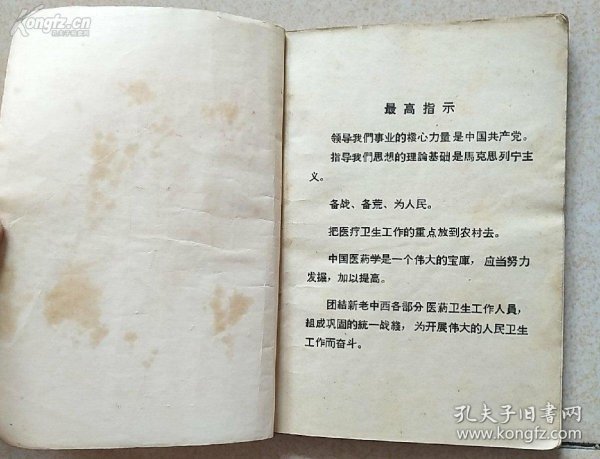 Kongfz.com
孔夫子旧书网
最高指示
领导我們事业的核心力量是中国共产党。
指导我們思想的理論基础是馬克思列宁主
义。
备战、备荒、为人民。
把医疗卫生工作的重点放到农村去。
中国医药学是一个伟大的宝庫，应当努力
发掘，加以提高。
团結新老中西各部分医药卫生工作人員，
組成巩固的統一战綫，为开展伟大的人民卫生
工作而奋斗。
孔夫子旧书网
www.kongfz.com